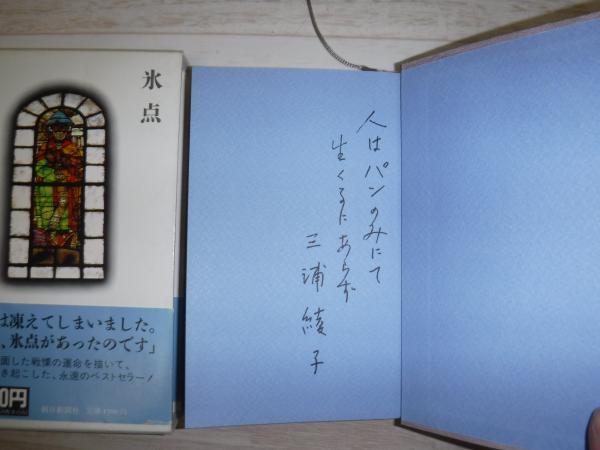 氷点
は凍えてしまいました。
、氷点があったのです」
面した戦慄の運命を描いて、
き起こした、永遠のベストセラー!
0円
朝日新聞社
人はパンのみにて
生くるにあらず
三浦綾子